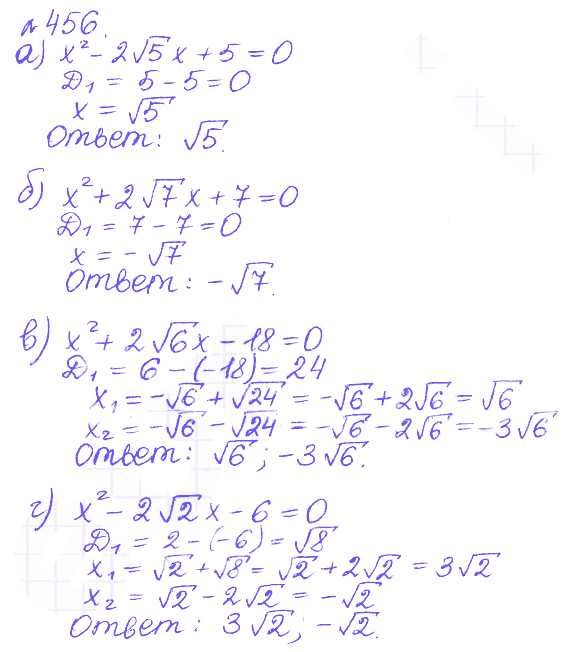 №456.
а) x² - 2√5 x + 5 = 0
Д₁ = 5 - 5 = 0
x = √5
Ответ: √5.
б) x² + 2√7 x + 7 = 0
Д₁ = 7 - 7 = 0
x = - √7
Ответ: -√7.
в) x² + 2√6 x - 18 = 0
Д₁ = 6 - (-18) = 24
x₁ = -√6 + √24 = -√6 + 2√6 = √6
x₂ = -√6 - √24 = -√6 - 2√6 = -3√6
Ответ: √6; -3√6.
г) x² - 2√2 x - 6 = 0
Д₁ = 2 - (-6) = √8
x₁ = √2 + √8 = √2 + 2√2 = 3√2
x₂ = √2 - 2√2 = -√2
Ответ: 3√2; -√2.